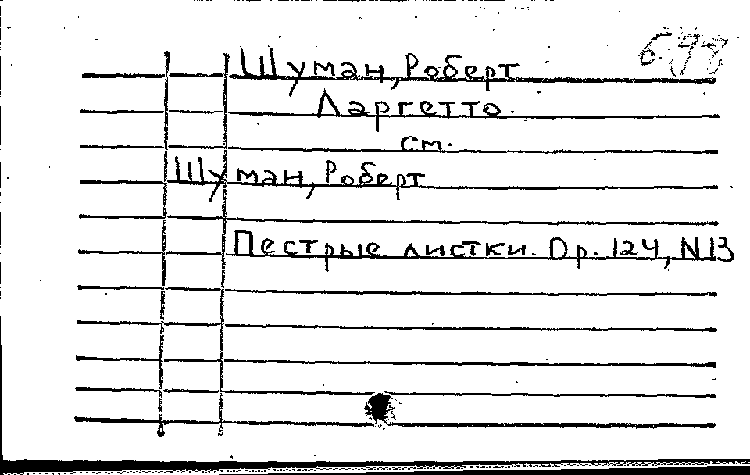 Шуман, Роберт
Ларгетто.
см.
Шуман, Роберт
Пестрые листки. Op. 124, N13